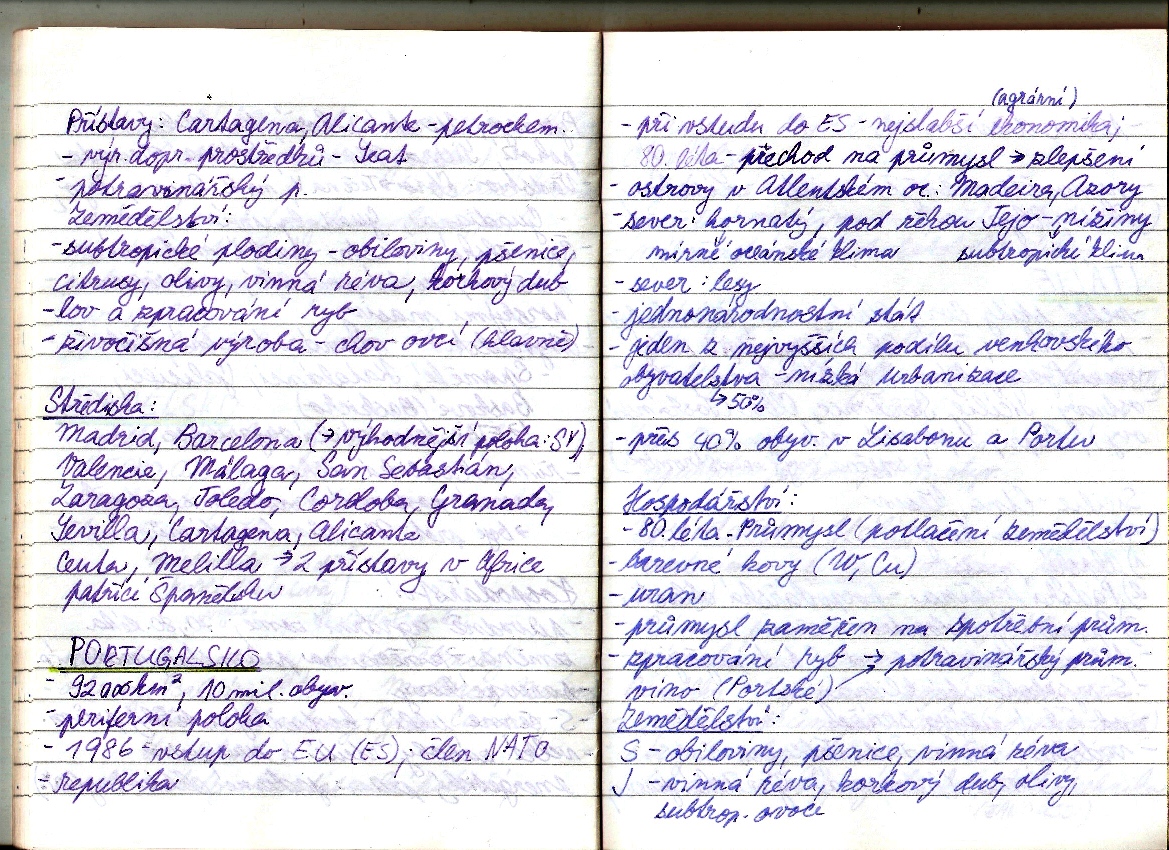 Přístavy: Cartagena, Alicante - petrochem.
- výr. dopr. prostředků - Seat
- potravinářský p.
Zemědělství:
- subtropické plodiny - obiloviny, pšenice,
citrusy, olivy, vinná réva, korkový dub
- lov a zpracování ryb
- živočišná výroba - chov ovcí (hlavně)
Střediska:
Madrid, Barcelona (→ výhodnější poloha: SV),
Valencie, Málaga, San Sebastián,
Zaragoza, Toledo, Cordoba, Granada,
Sevilla, Cartagena, Alicante
Ceuta, Melilla → 2 přístavy v Africe
patřící Španělsku
PORTUGALSKO
- 92 000 km², 10 mil. obyv.
- periferní poloha
- 1986 - vstup do EU (ES); člen NATO
- republika
(agrární)
- při vstudu do ES - nejslabší ekonomika;
80. léta - přechod na průmysl → zlepšení
- ostrovy v Atlentském oc.: Madeira, Azory
- sever: hornatý, pod řekou Tejo - nížiny
mírné oceánské klima subtropické klima
- sever: lesy
- jednonárodnostní stát
- jeden z nejvyšších podílu venkovského
obyvatelstva - nízká urbanizace
↳ 50%
- přes 40% obyv. v Lisabonu a Portu
Hospodářství:
- 80. léta - Průmysl (potlačení zemědělství)
- barevné kovy (W, Cu)
- uran
- průmysl zaměřen na spotřební prům.
- zpracování ryb → potravinářský prům.
víno (Portské)
Zemědělství:
S - obiloviny, pšenice, vinná réva
J - vinná réva, korkový dub, olivy,
subtrop. ovoce